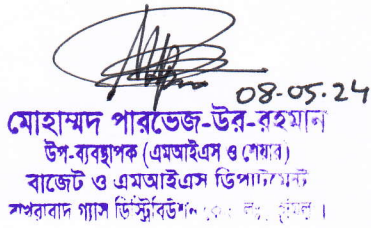 08-05-24
মোহাম্মদ পারভেজ-উর-রহমান
উপ-ব্যবস্থাপক (এমআইএস ও শেয়ার)
বাজেট ও এমআইএস ডিপার্টমেন্ট
বাখরাবাদ গ্যাস ডিস্ট্রিবিউশন